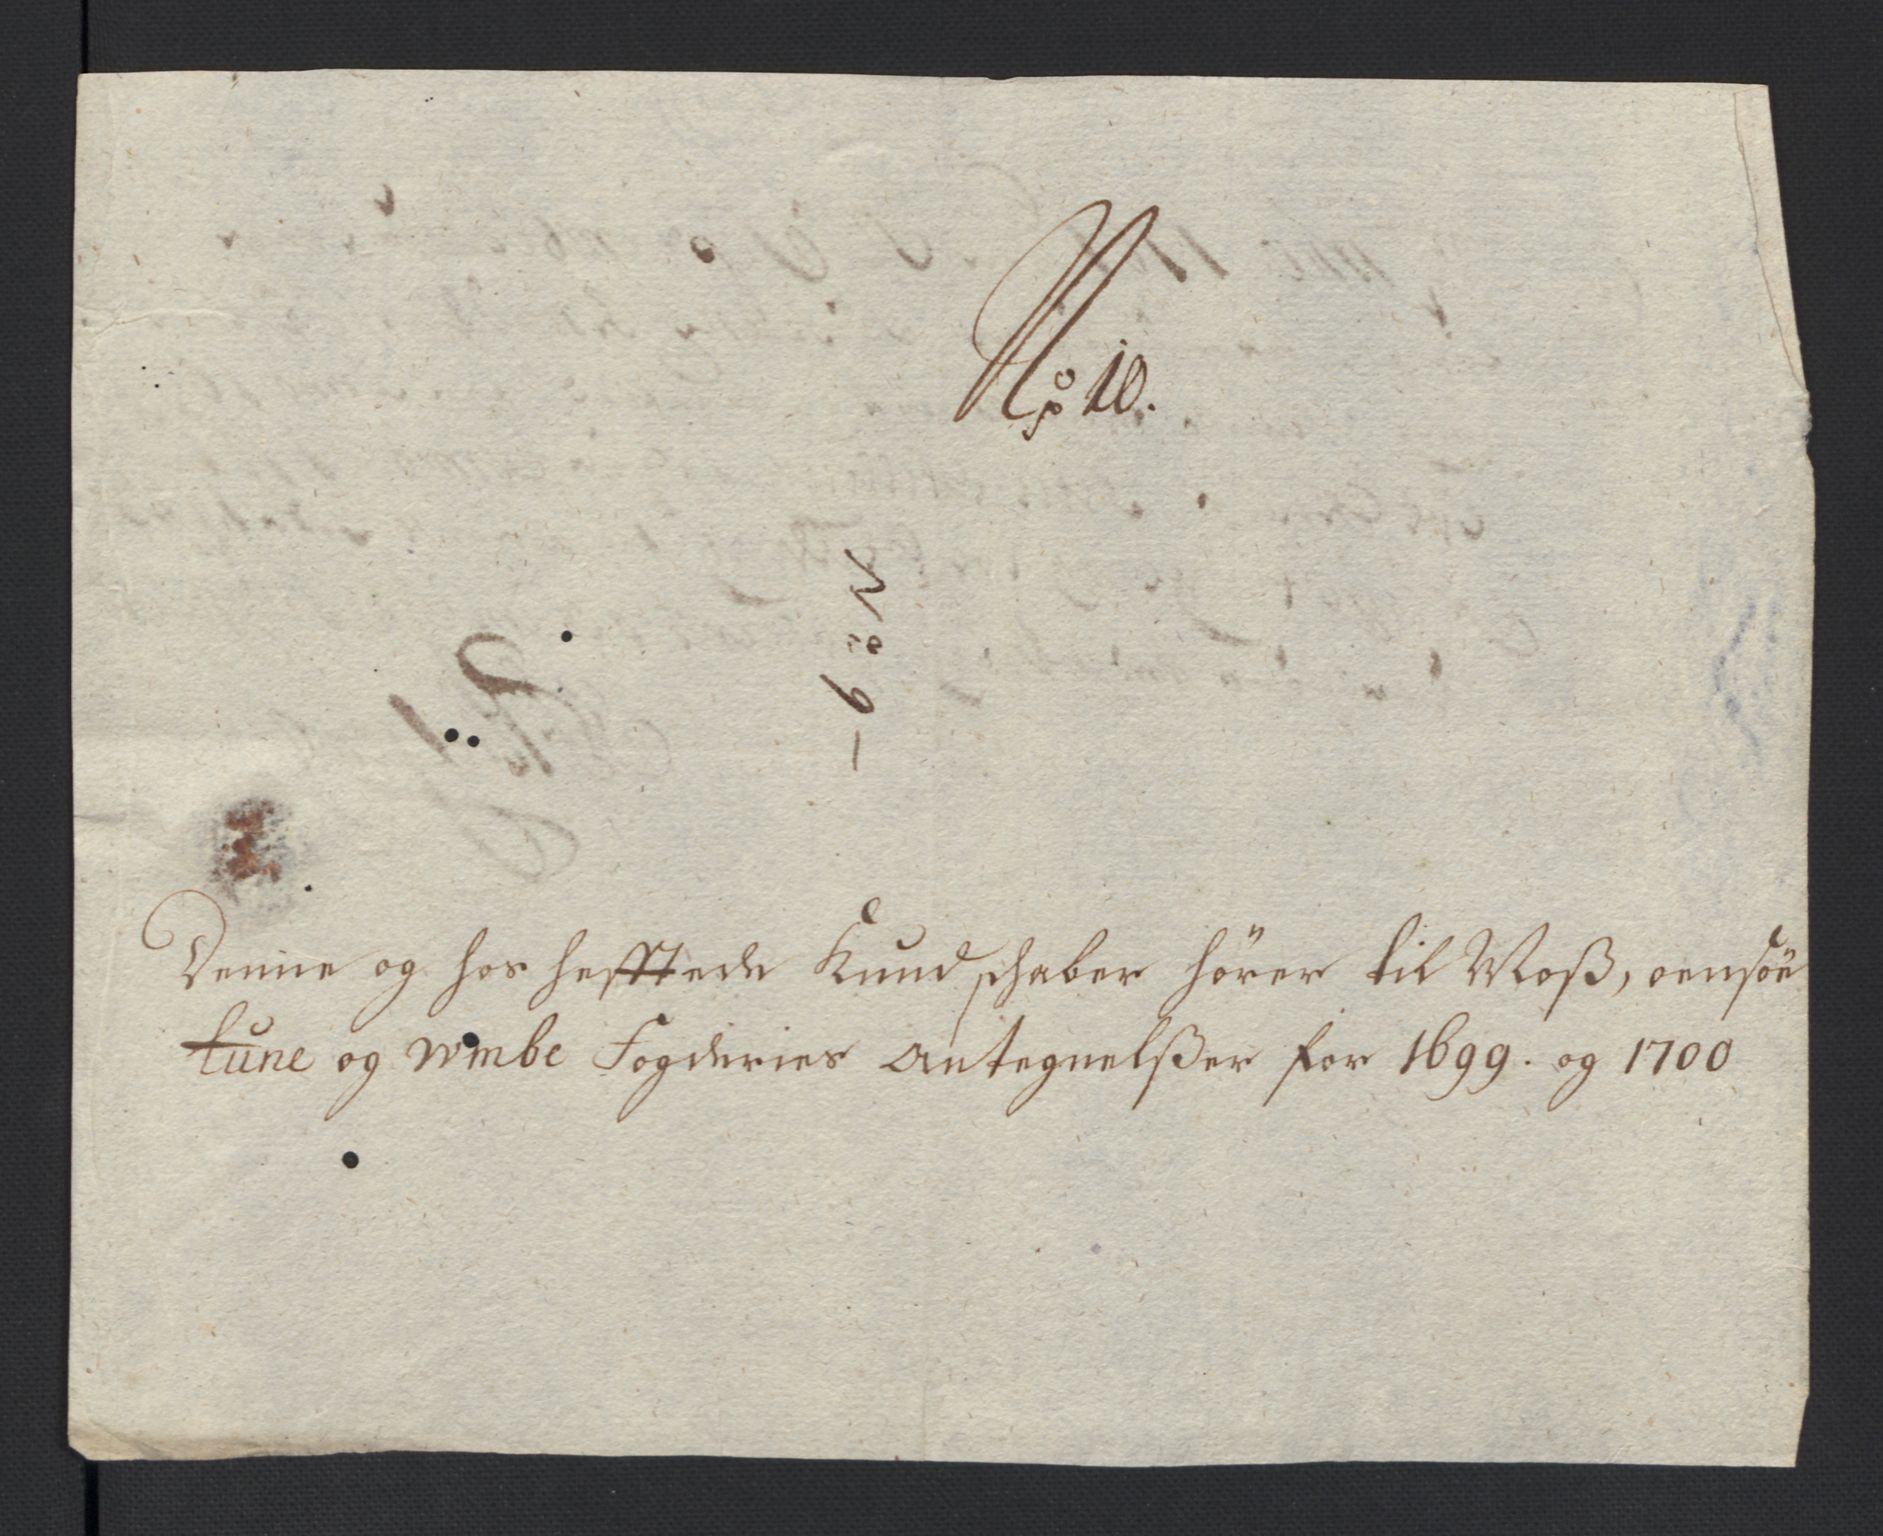 No 10.
No: 9 –
Denne og hos hefftede Kundschaber hører til Moß, oensøe
tune og wmbe Fogderies Antegnelßer for 1699. og 1700